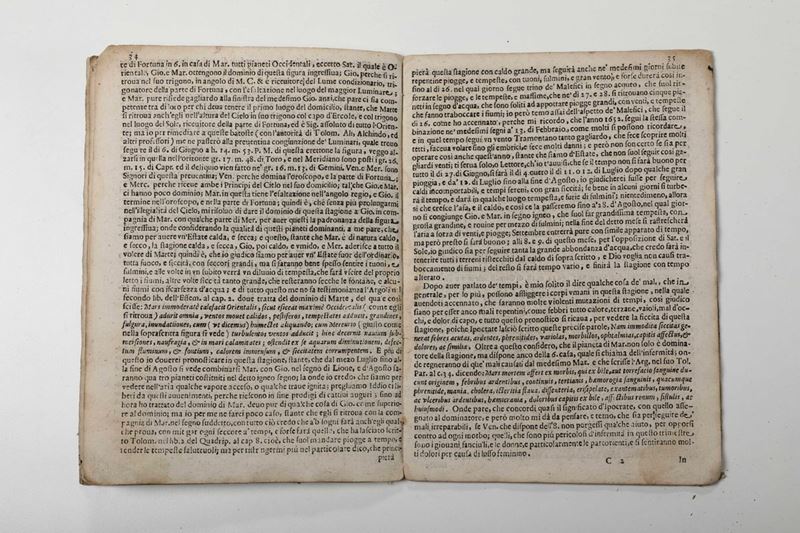 34
te di Fortuna in 6. in casa di Mar. tutti pianeti Occidentali, eccetto Sat. il quale è O-
rientale, Gio. e Mar. ottengono il dominio di questa figura ingressiua; Gio. perche si ri-
troua nel suo trigono, in angolo di M. C. & è riceuitore del Lume condizionario, tri-
gonatore della parte di Fortuna, con l'esaltatione nel luogo del maggior Luminare,
e Mar. pure risiede gagliardo alla sinistra del medesimo Gio. anzi che pare ci sia com-
petente tra di loro per chi deue tenere il primo luogo del domicilio, stante, che Marte
si ritroua anch'egli nell'altura del Cielo in suo trigono col capo d'Ercole, e col trigono
nel luogo del Sole, riceuitore della parte di Fortuna, ed è Sig. assoluto di tutto l'Orien-
te; ma io per rimediare a queste batoste (con l'autorità di Tolom. Ali, Alchindo, ed
altri professori) me ne passerò alla preuentiua congiunzione de' Luminari, quale trouo
segue il dì 6. di Giugno à h. 14. m. 53. P. M. di questa erettone la figura, veggo al-
zarsi in quella nell'oroscopo gr. 17. m. 48. di Toro, e nel Meridiano sono posti gr. 26.
m. 15. di Capr. ed il deliquio vien fatto ne' gr. 16. m. 13. di Gemini. Ven. e Mer. sono
Signori di questa preuentiua; Ven. perche domina l'oroscopo, e la parte di Fortuna,
e Merc. perche riceue ambe i Principi del Cielo nel suo domicilio; tal che Gio. e Mar.
ci hanno poco dominio; Mar. in questa tiene l'esaltazione nell'angolo regio, e Gio. il
termine nell'oroscopo, e nella parte di Fortuna; quindi è, che senza più prolongarmi
nell'isegialità del Cielo, mi risoluo di dare il dominio di questa stagione a Gio. in com-
pagnia di Mar. con qualche parte di Mer. per auer questi la padronanza della figura
ingressiua; onde considerando la qualità di questi pianeti dominanti, a me pare, che
siamo per auere vn'Estate calda, e secca; e questo, stante che Mar. è di natura caldo,
e secco, la stagione calda, e secca, e Gio. poi caldo, e vmido. e Mer. aderisce a tutto il
volere di Marte; quindi è, che io giudico siamo per auer vn' Estate fuor dell'ordinario
tutta fuoco, e siccità, con seccori grandi, ma si saranno bene spesso sentire i tuoni, e
fulmini, e alle volte in vn subito verrà vn diluuio di tempesta, che farà vscire del proprio
letto i fiumi, altre volte siccità tanto grande, che resteranno secche le fontane, e alcu-
ni fiumi con scarsezza d'acqua; e di tutto questo me ne fa testimonianza l'Argol in
secondo lib. dell'Efem. al cap. 2. doue tratta del dominio di Marte, del qua e così
scisse: Mars immoderatè calefacit Orientalis, sicut exsiccat maximè Occidentalis (come egli
si ritroua) adurit omnia, ventos mouet calidos, pestiferos, tempestates adducit, grandines,
fulgura, inundationes, cum (vt dicemus) humectet aliquando; cum Mercurio (giusto come
nella soprascritta figura si vede) turbulentos ventos adducit; hinc deuenit nauium sub-
mersiones, naufragia, & in mari calamitates; ostendit ex se aquarum diminutionem, defec-
tum fluminum, & fontium, calorem immensum, & siccitatem corrumpentem. E più di
questo io douerei pronosticare in questa stagione, stante, che dal mezo Luglio sino al-
la fine di Agosto si vede combinarsi Mar. con Gio. nel segno di Lione, e d'Agosto sa-
ranno qua tro pianeti costituiti nel detto igneo segno; la onde io credo che siamo per
vedere nell'aria qualche vapore acceso, o qualche traue ignita; preghiamo Iddio ci li-
beri da questi auuenimenti, perche riescono in fine prodigi di cattiui auguri; sino ad
hora ho trattato del dominio di Mar. deuo poi di qualche cosa di Gio. come superio-
re al dominio; ma io per me ne farei poco caso, stante che egli si ritroua con la com-
pagnia di Mar. nel segno suddetto, con tutto ciò credo che à b'sogni farà anch'egli qual
che proua, con mitigar ogni seccore a' tempi, e forse farà quello, che ha lasciato scrit-
to Tolom. nel lib. 2. del Quadrip. al cap 8. cioè, che suol mandare piogge a tempo, e
rendere le tempeste saluteuoli; ma per tistringermi più nel particolare dico, che princi-
pierà
35
pierà questa stagione con caldo grande, ma seguirà anche ne' medesimi giorni subite
repentine piogge, e tempeste, con tuoni, fulmini, e gran vento, e forse durerà così in-
sino al dì 26. nel qual giorno segue trino de' Malefici in segno acqueo, che suol rin-
forzare le piogge, e le tempeste, e massime, che ne' dì 27. e 28. si ritrouano cinque pia-
neti in segno d'acqua, che sono soliti ad apportare piogge grandi, con venti, e tempeste
che fanno traboccare i fiumi; io però temo assai dell'aspetto de' Malefici, che segue il
dì 26. come ho accennato, perche mi ricordo, che l'anno 1653. segui la stessa com-
binazione ne' medesimi segni a' 23. di Febbraio, come molti si possono ricordare,
e in quel tempo seguì vn vento Tramontano tanto gagliardo, che fece scoprire molti
tetti, faceua volare sino gli embrici, e fece molti danni; e però non son certo se sia per
operare così anche quest'anno, stante che siamo d'Estate, che non suol seguir così ga-
gliardi venti; ti scusa solo o Lettore, ch'io t'auuiso che se il tempo non si farà buono per
tutto il dì 27. di Giugno, si farà il dì 4. ouero il dì 11. o 12. di Luglio dopo qualche gran
pioggia, e da' 12. di Luglio sino alla fine d'Agosto, io giudicherei fusse per seguire
caldi incomportabili, e tempi sereni, con gran siccità; se bene in alcuni giorni si turbe-
rà il tempo, e darà in qualche luogo tempesta, e farie di fulmini; niente dimeno, allora
si che cresce l'asa, e il caldo, e così ce la passeremo sino a' 28. d'Agosto, nel qual gior-
no si congiunge Gio. e Mar. in segno igneo, che suol far grandissima tempesta, con
grossa grandine, e rouine per orezzo di fulmini; nella fine del detto mese si rasfrescherà
l'aria a forza di venti, e piogge. Settembre entrerà pure con simile apparato di tempo,
ma però presto si farà buono; alli 8. e 9. di questo mese, per l'opposizion di Sat. e il
Sole, io giudico sia per seguire tanta la grande abbondanza d'acqua, che credo farà in-
tenerire tutti i terreni rissecchiti dal caldo di sopra scritto, e Dio voglia non causi tra-
boccamento di fiumi; del resto si farà tempo vario, e finirà la stagione con tempo
alterato.
Dopo auer parlato de' tempi, è mio solito il dire qualche cosa de' mal, che in
generale, per lo più, possono affliggere i corpi vmani in questa stagione, nella quale
auendoti accennato, che saranno molte violenti mutazioni di tempi, così giudico
siano per esser anco mali repentini, come febbri tutto calore, terzane, vaioli, mal d'oc-
chi, e dolor di capo, e tutto questo pronostico si ricaua, per vedere la siccità di questa
stagione, poiche Ipocrate lasciò scritto queste precise parole, Nam immodica siccitas ge-
nerat febres acutas, ardentes, phrenitides, variolas, morbillos, ophtalmias, capitis affectus, &
dolores, ac similes. Oltre a questo considero, che il pianeta di Mar. non solo è domina-
tore della stagione, ma dispone anco della 6. casa, quale si chiama dell'infermità; on-
de regneranno di que' mali causati dal medesimo Mar. e che scrisse l'Arg. nel suo Tol.
Par. al c. 34. dicendo; Mars mortem affert ex morbis, qui ex bile, aut torrefacto sanguine du-
cunt originem, febribus ardentibus, continuis, tertianis, hæmorogia sanguinis, quacumque
phrenitide, mania, cholera, esserita flaua, dissenteria, erysipelate, exantematibus, tumoribus,
ac vlceribus ardentibus, hæmicrania, doloribus capitis ex bile, astistibus renum, fistulis, ac
huiusmodi. Onde pare, che concordi quasi il significato d'Ipocrate, con quello asse-
gnato al dominatore, e però molto mi dà da pensare, e temo, che sia per seguire de'
mali irreparabili, se Ven. che dispone dell'8. non porgesi qualche aiuto, per opporsi
contro ad ogni morbo; quelli, che sono più pericolosi d'infermità in questo trimestre,
sono i giouani, fanciulli, e le donne, e particolarmente le partorienti, e si sentiranno mol-
ti dolori per causa di lasso feminino.
C 2
In